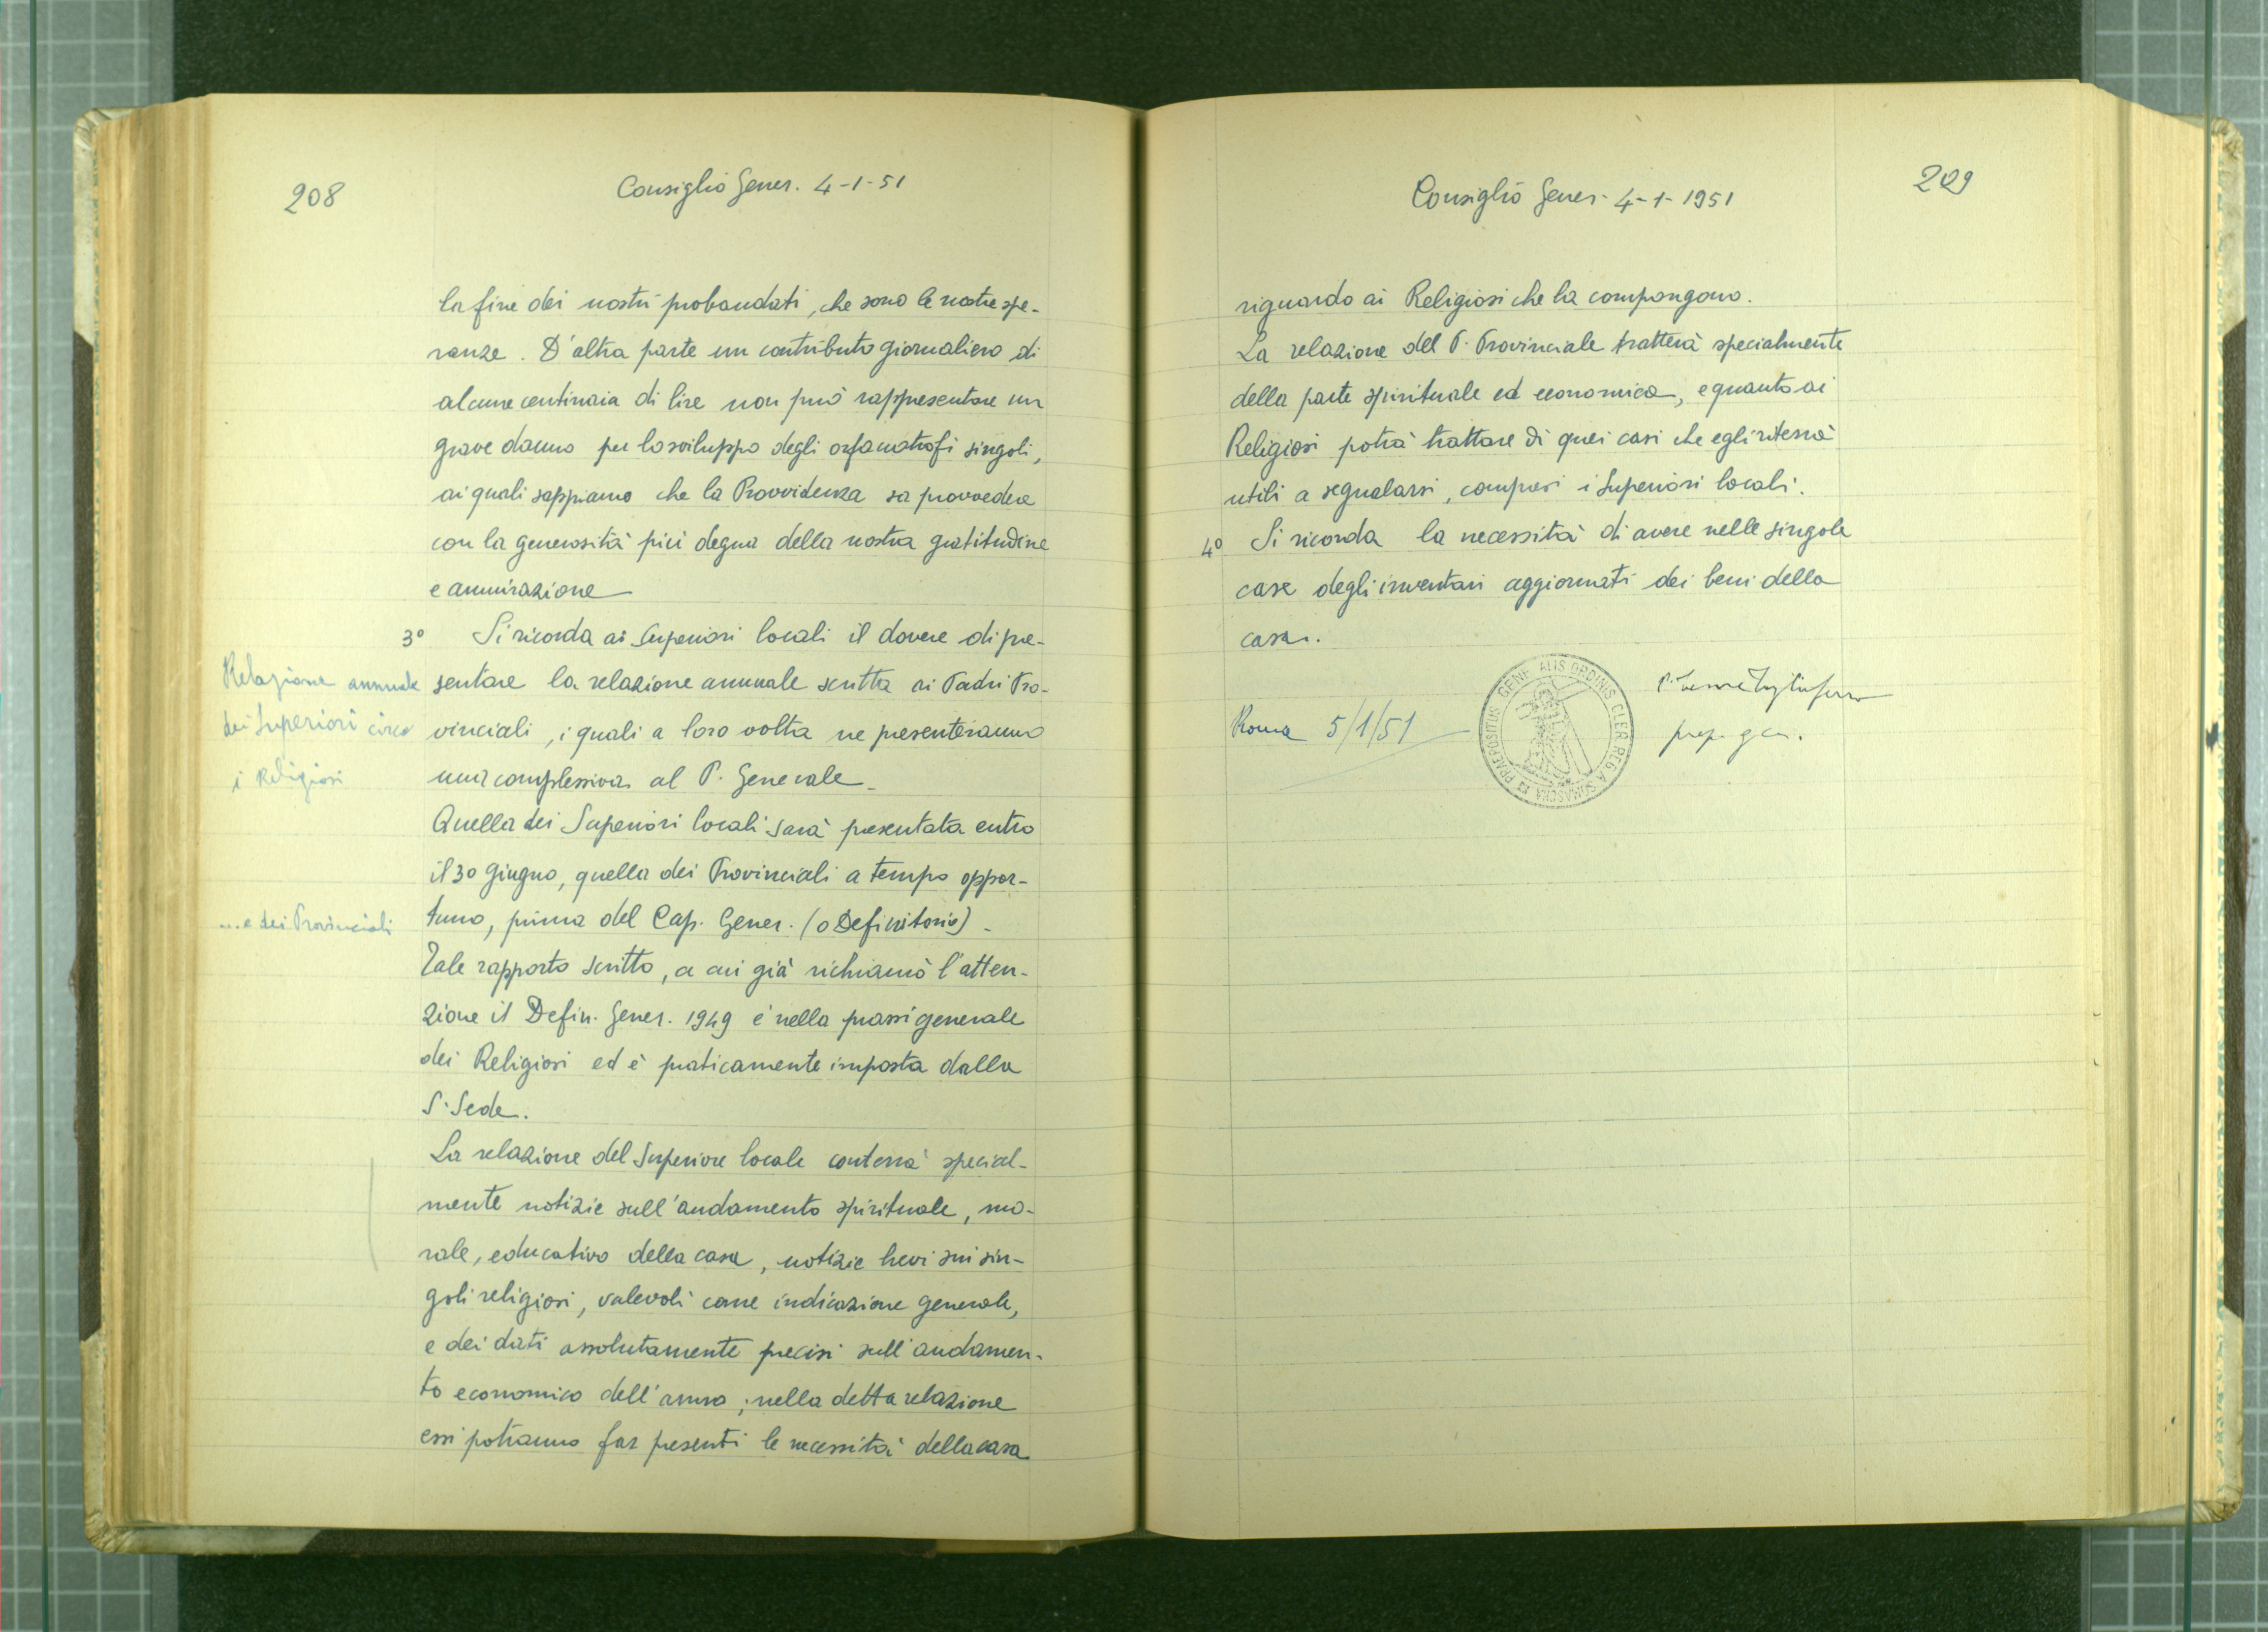 208
Consiglio Gener. 4-1-51
la fine dei nostri probandati, che sono le nostre spe-
ranze. D'altra parte un contributo giornaliero di
alcune centinaia di lire non può rappresentare un
grave danno per lo sviluppo degli orfanotrofi singoli,
ai quali sappiamo che la Provvidenza sa provvedere
con la generosità più degna della nostra gratitudine
e ammirazione
3° Si ricorda ai Superiori locali il dovere di pre-
sentare la relazione annuale scritta ai Padri Pro-
vinciali, i quali a loro volta ne presenteranno
una complessiva al P. Generale.
Quella dei Superiori locali sarà presentata entro
il 30 Giugno, quella dei Provinciali a tempo oppor-
tuno, prima del Cap. Gener. (o Definitorio).
Tale rapporto scritto, a cui già richiamò l'atten-
zione il Defin. Gener. 1949 è nella prassi generale
dei Religiosi ed è praticamente imposta dalla
S. Sede.
La relazione del Superiore locale conterrà special-
mente notizie sull'andamento spirituale, mo-
rale, educativo della casa, notizie brevi sui sin-
goli religiosi, valevoli come indicazione generale,
e dei dati assolutamente precisi sull'andamen-
to economico dell'anno; nella detta relazione
essi potranno far presenti le necessità della casa
Relazione annuale
dei Superiori circa
i Religiosi
... e dei Provinciali
Consiglio Gener. 4-1-1951
209
riguardo ai Religiosi che la compongono.
La relazione del P. Provinciale tratterà specialmente
della parte spirituale ed economica, e quanto ai
Religiosi potrà trattare di quei casi che egli riterrà
utili a segnalarsi, compresi i Superiori locali.
4° Si ricorda la necessità di avere nelle singole
case degli inventari aggiornati dei beni della
casa.
Roma 5/1/51
prep. gen.
PRAEPOSITUS GENERALIS ORDINIS CLER. REG. A SOMASCHA